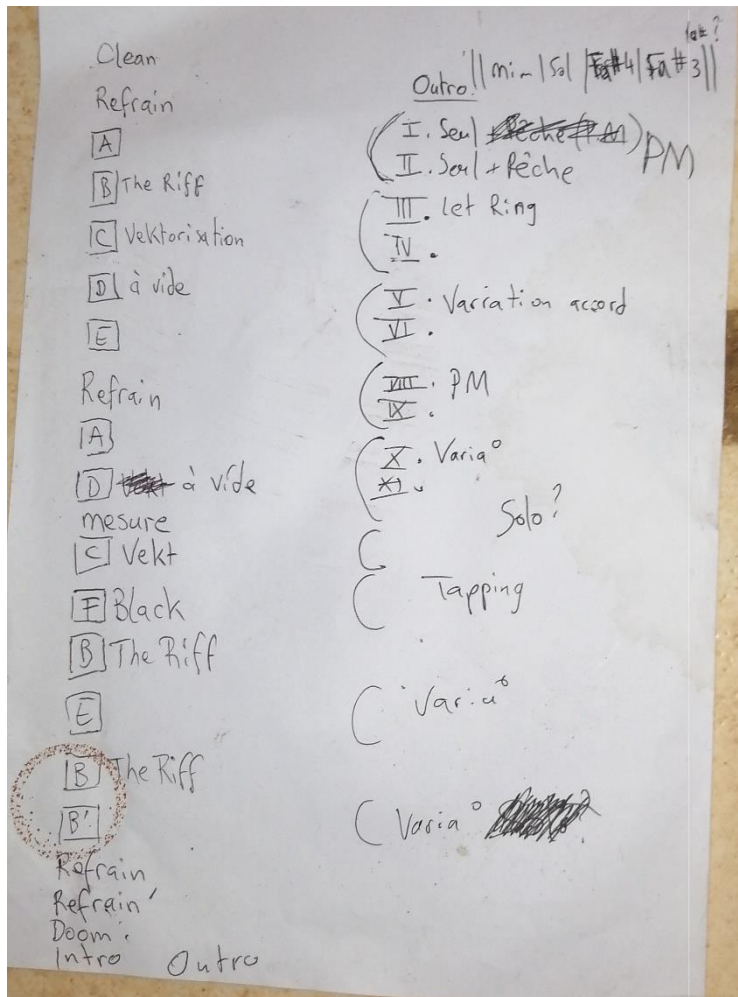 Clean
Refrain
A
B The Riff
C Vektorisation
D à vide
E
Refrain
A
D à vide
mesure
C Vekt
F Black
B The Riff
E
B The Riff
B'
Refrain
Refrain'
Doom
Intro Outro
Outro: || mim | Sol | Fa#4 | Fa#3 ||
I. Seul
II. Seul + Pêche
PM
III. Let Ring
IV.
V. Variation accord
VI.
VIII. PM
IX.
X. Varia°
XI.
Solo?
Tapping
Varia°
Varia°